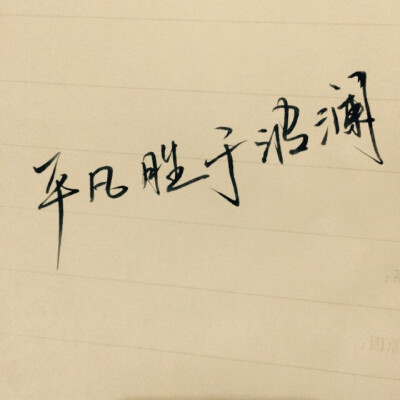 平凡胜于波澜